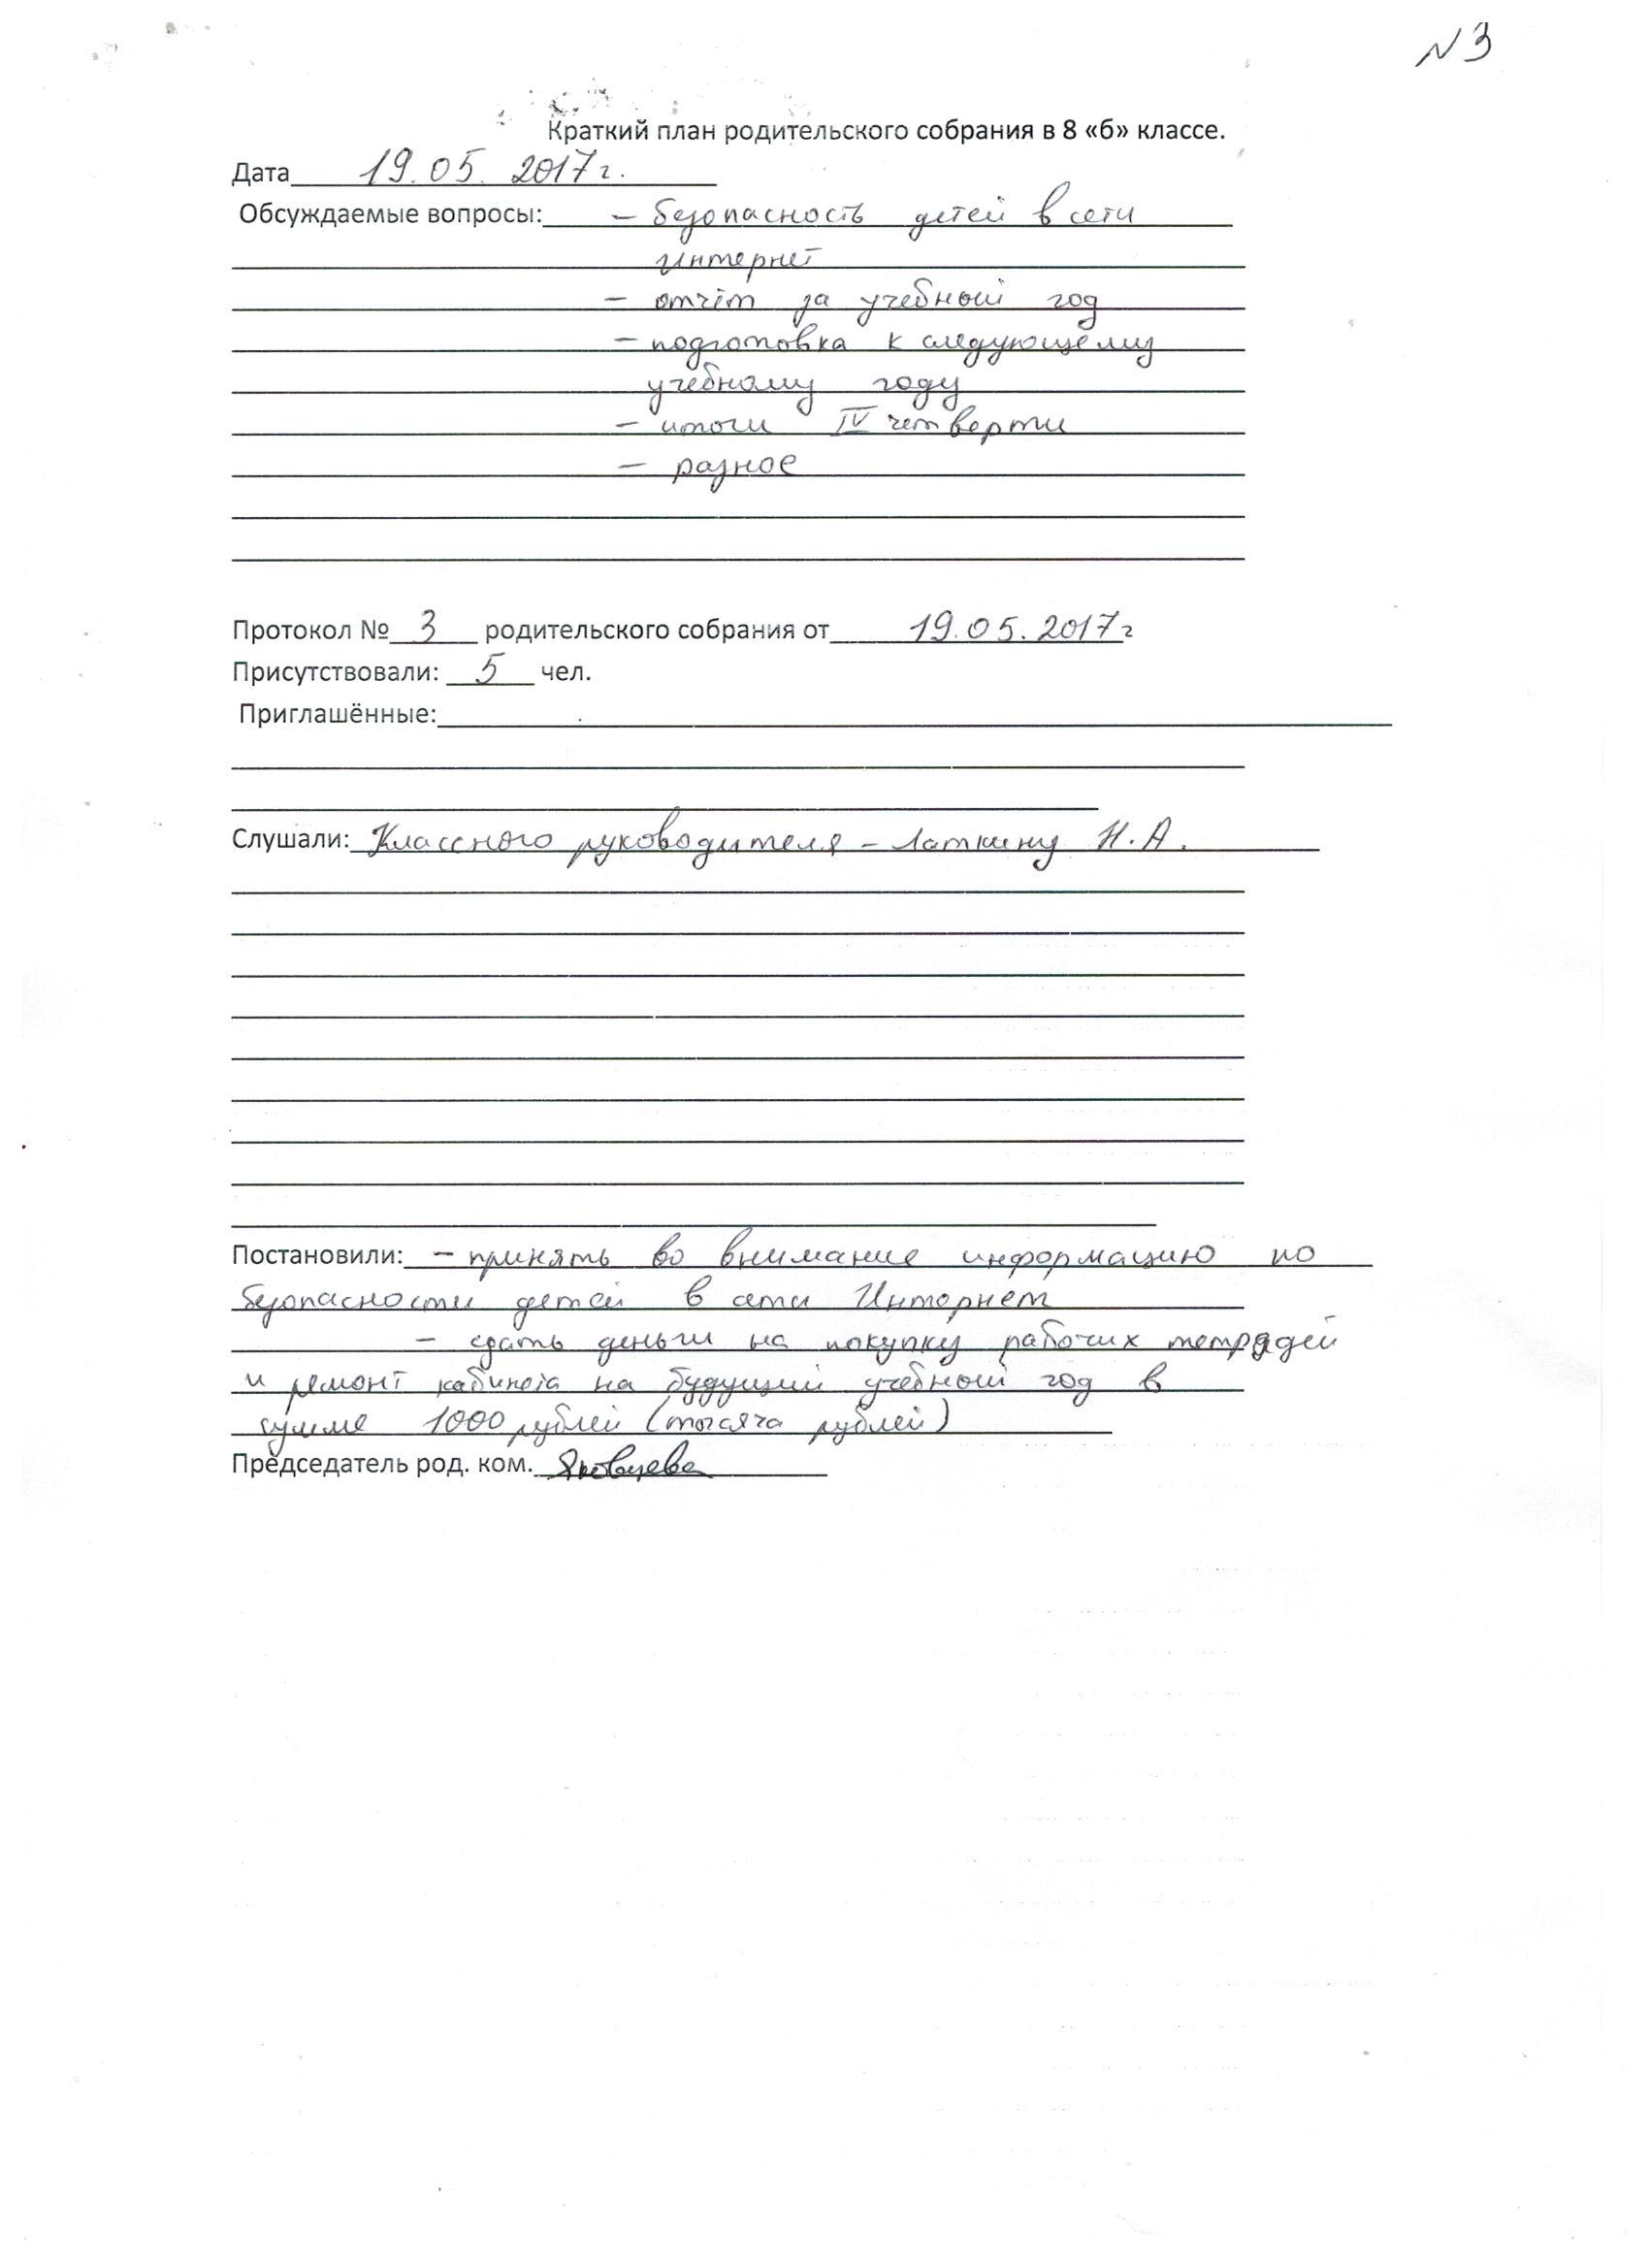 N 3
Краткий план родительского собрания в 8 «б» классе.
Дата 19.05.2017г.
Обсуждаемые вопросы: – безопасность детей в сети
интернет
– отчёт за учебный год
– подготовка к следующему
учебному году
– итоги IV четверти
– разное
Протокол № 3 родительского собрания от 19.05.2017г
Присутствовали: 5 чел.
Приглашённые:
Слушали: Классного руководителя – Латкину Н.А.
Постановили: – принять во внимание информацию по
безопасности детей в сети Интернет
– сдать деньги на покупку рабочих тетрадей
и ремонт кабинета на будущий учебный год в
сумме 1000 рублей (тысяча рублей)
Председатель род. ком.